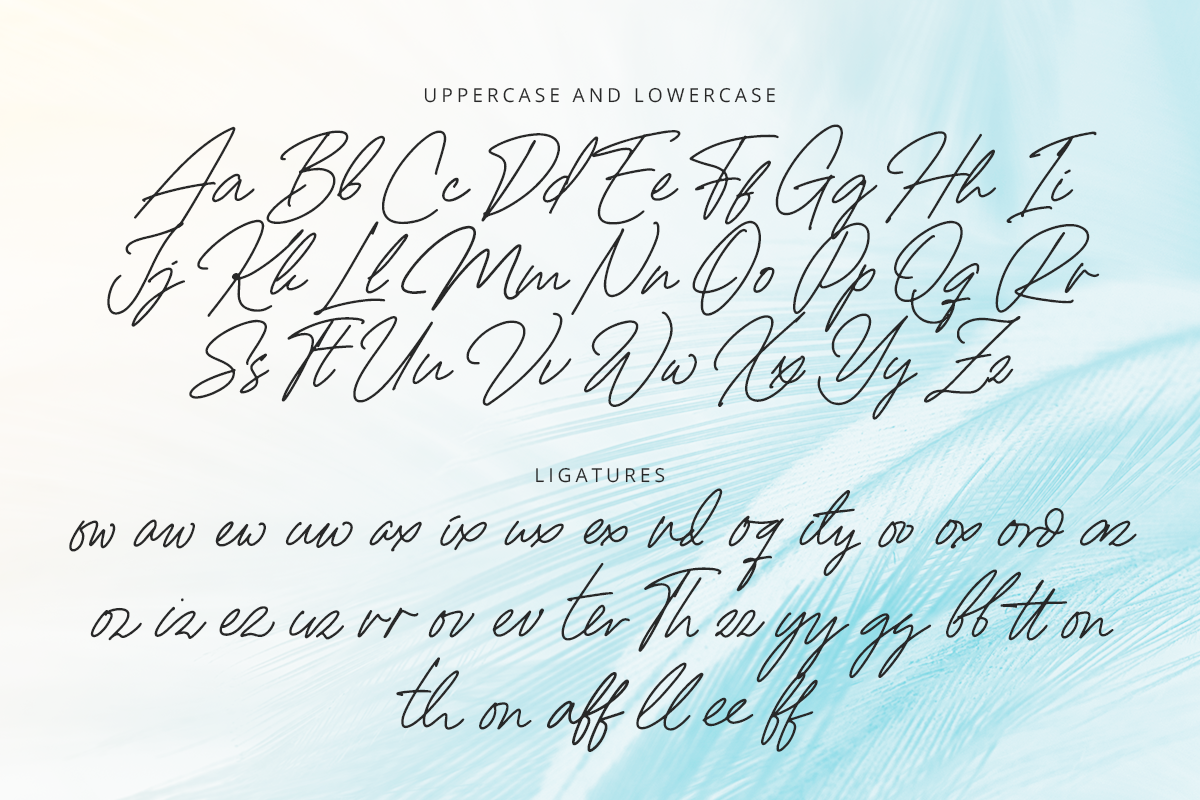 UPPERCASE AND LOWERCASE
Aa Bb Cc Dd Ee Ff Gg Hh Ii
Jj Kk Ll Mm Nn Oo Pp Qq Rr
Ss Tt Uu Vv Ww Xx Yy Zz
LIGATURES
ow aw ew uw ax ix ux ex nd oq ity oo ox ord az
oz iz ez uz rr ov ev ter Th zz yy gg bb tt on
th on aff ll ee ff